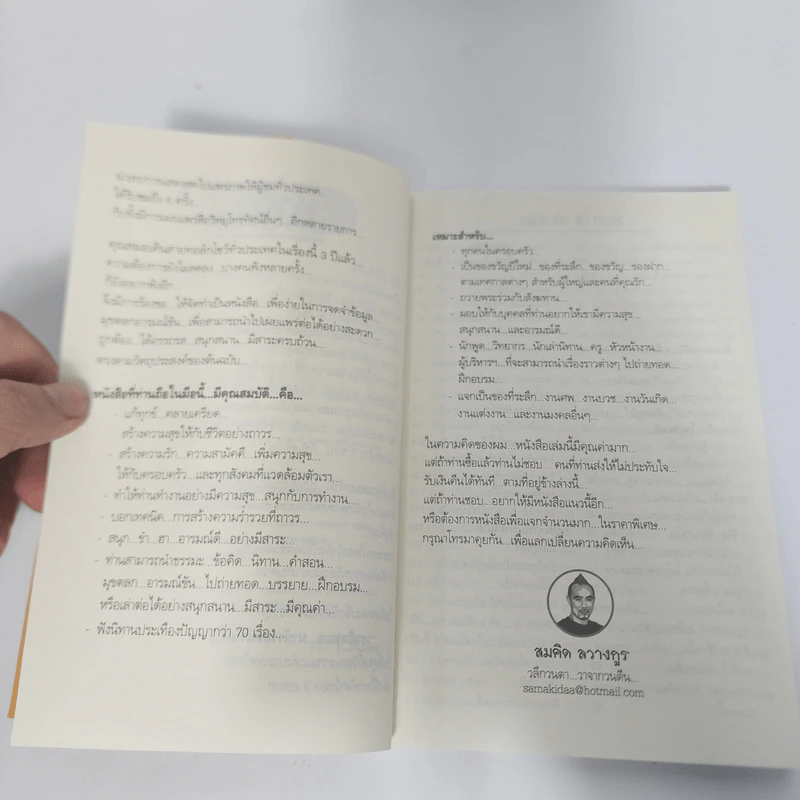 นำเทปการแสดงสดไปแพร่ภาพให้ผู้ชมทั่วประเทศ...
ได้รับชมถึง ๓ ครั้ง...
กับทั้งมีการเผยแพร่สื่อวิทยุโทรทัศน์อื่นๆ...อีกหลายรายการ...
คุณหมอเดินสายทอล์กโชว์ทั่วประเทศในเรื่องนี้ 3 ปีแล้ว...
ความต้องการยังไม่ลดลง...บางคนฟังหลายครั้ง...
ก็ยังอยากฟังอีก...
จึงมีการร้องขอ...ให้จัดทำเป็นหนังสือ...เพื่อง่ายในการจดจำข้อมูล...
มุขตลกอารมณ์ขัน...เพื่อสามารถนำไปเผยแพร่ต่อได้อย่างสะดวก...
ถูกต้อง...ได้อรรถรส...สนุกสนาน...มีสาระครบถ้วน...
ตรงตามวัตถุประสงค์ของต้นฉบับ...
หนังสือที่ท่านถือในมือนี้...มีคุณสมบัติ...คือ...
- แก้ทุกข์...คลายเครียด...
สร้างความสุขให้กับชีวิตอย่างถาวร...
- สร้างความรัก...ความสามัคคี...เพิ่มความสุข...
ให้กับครอบครัว...และทุกสังคมที่แวดล้อมตัวเรา...
- ทำให้ท่านทำงานอย่างมีความสุข...สนุกกับการทำงาน...
- บอกเทคนิค...การสร้างความร่ำรวยที่ถาวร...
- สนุก...ขำ...ฮา...อารมณ์ดี...อย่างมีสาระ...
- ท่านสามารถนำธรรมะ...ข้อคิด...นิทาน...คำสอน...
มุขตลก...อารมณ์ขัน...ไปถ่ายทอด...บรรยาย...ฝึกอบรม...
หรือเล่าต่อได้อย่างสนุกสนาน...มีสาระ...มีคุณค่า...
- ฟังนิทานประเทืองปัญญากว่า 70 เรื่อง...
เหมาะสำหรับ...
- ทุกคนในครอบครัว...
- เป็นของขวัญปีใหม่...ของที่ระลึก...ของขวัญ...ของฝาก...
ตามเทศกาลต่างๆ สำหรับผู้ใหญ่และคนที่คุณรัก...
- ถวายพระร่วมกับสังฆทาน...
- มอบให้กับบุคคลที่ท่านอยากให้เขามีความสุข...
สนุกสนาน...และอารมณ์ดี...
- นักพูด...วิทยากร...นักเล่านิทาน...ครู...หัวหน้างาน...
ผู้บริหารฯ...ที่จะสามารถนำเรื่องราวต่างๆ ไปถ่ายทอด...
ฝึกอบรม...
- แจกเป็นของที่ระลึก...งานศพ...งานบวช...งานวันเกิด...
งานแต่งงาน...และงานมงคลอื่นๆ...
ในความคิดของผม...หนังสือเล่มนี้มีคุณค่ามาก...
แต่ถ้าท่านซื้อแล้วท่านไม่ชอบ...คนที่ท่านส่งให้ไม่ประทับใจ...
รับเงินคืนได้ทันที...ตามที่อยู่ข้างล่างนี้...
แต่ถ้าท่านชอบ...อยากให้มีหนังสือแนวนี้อีก...
หรือต้องการหนังสือเพื่อแจกจำนวนมาก...ในราคาพิเศษ...
กรุณาโทรมาคุยกัน...เพื่อแลกเปลี่ยนความคิดเห็น...
สมคิด ลวางกูร
วลีกวนตา...วาจากวนตีน...
samakidaa@hotmail.com